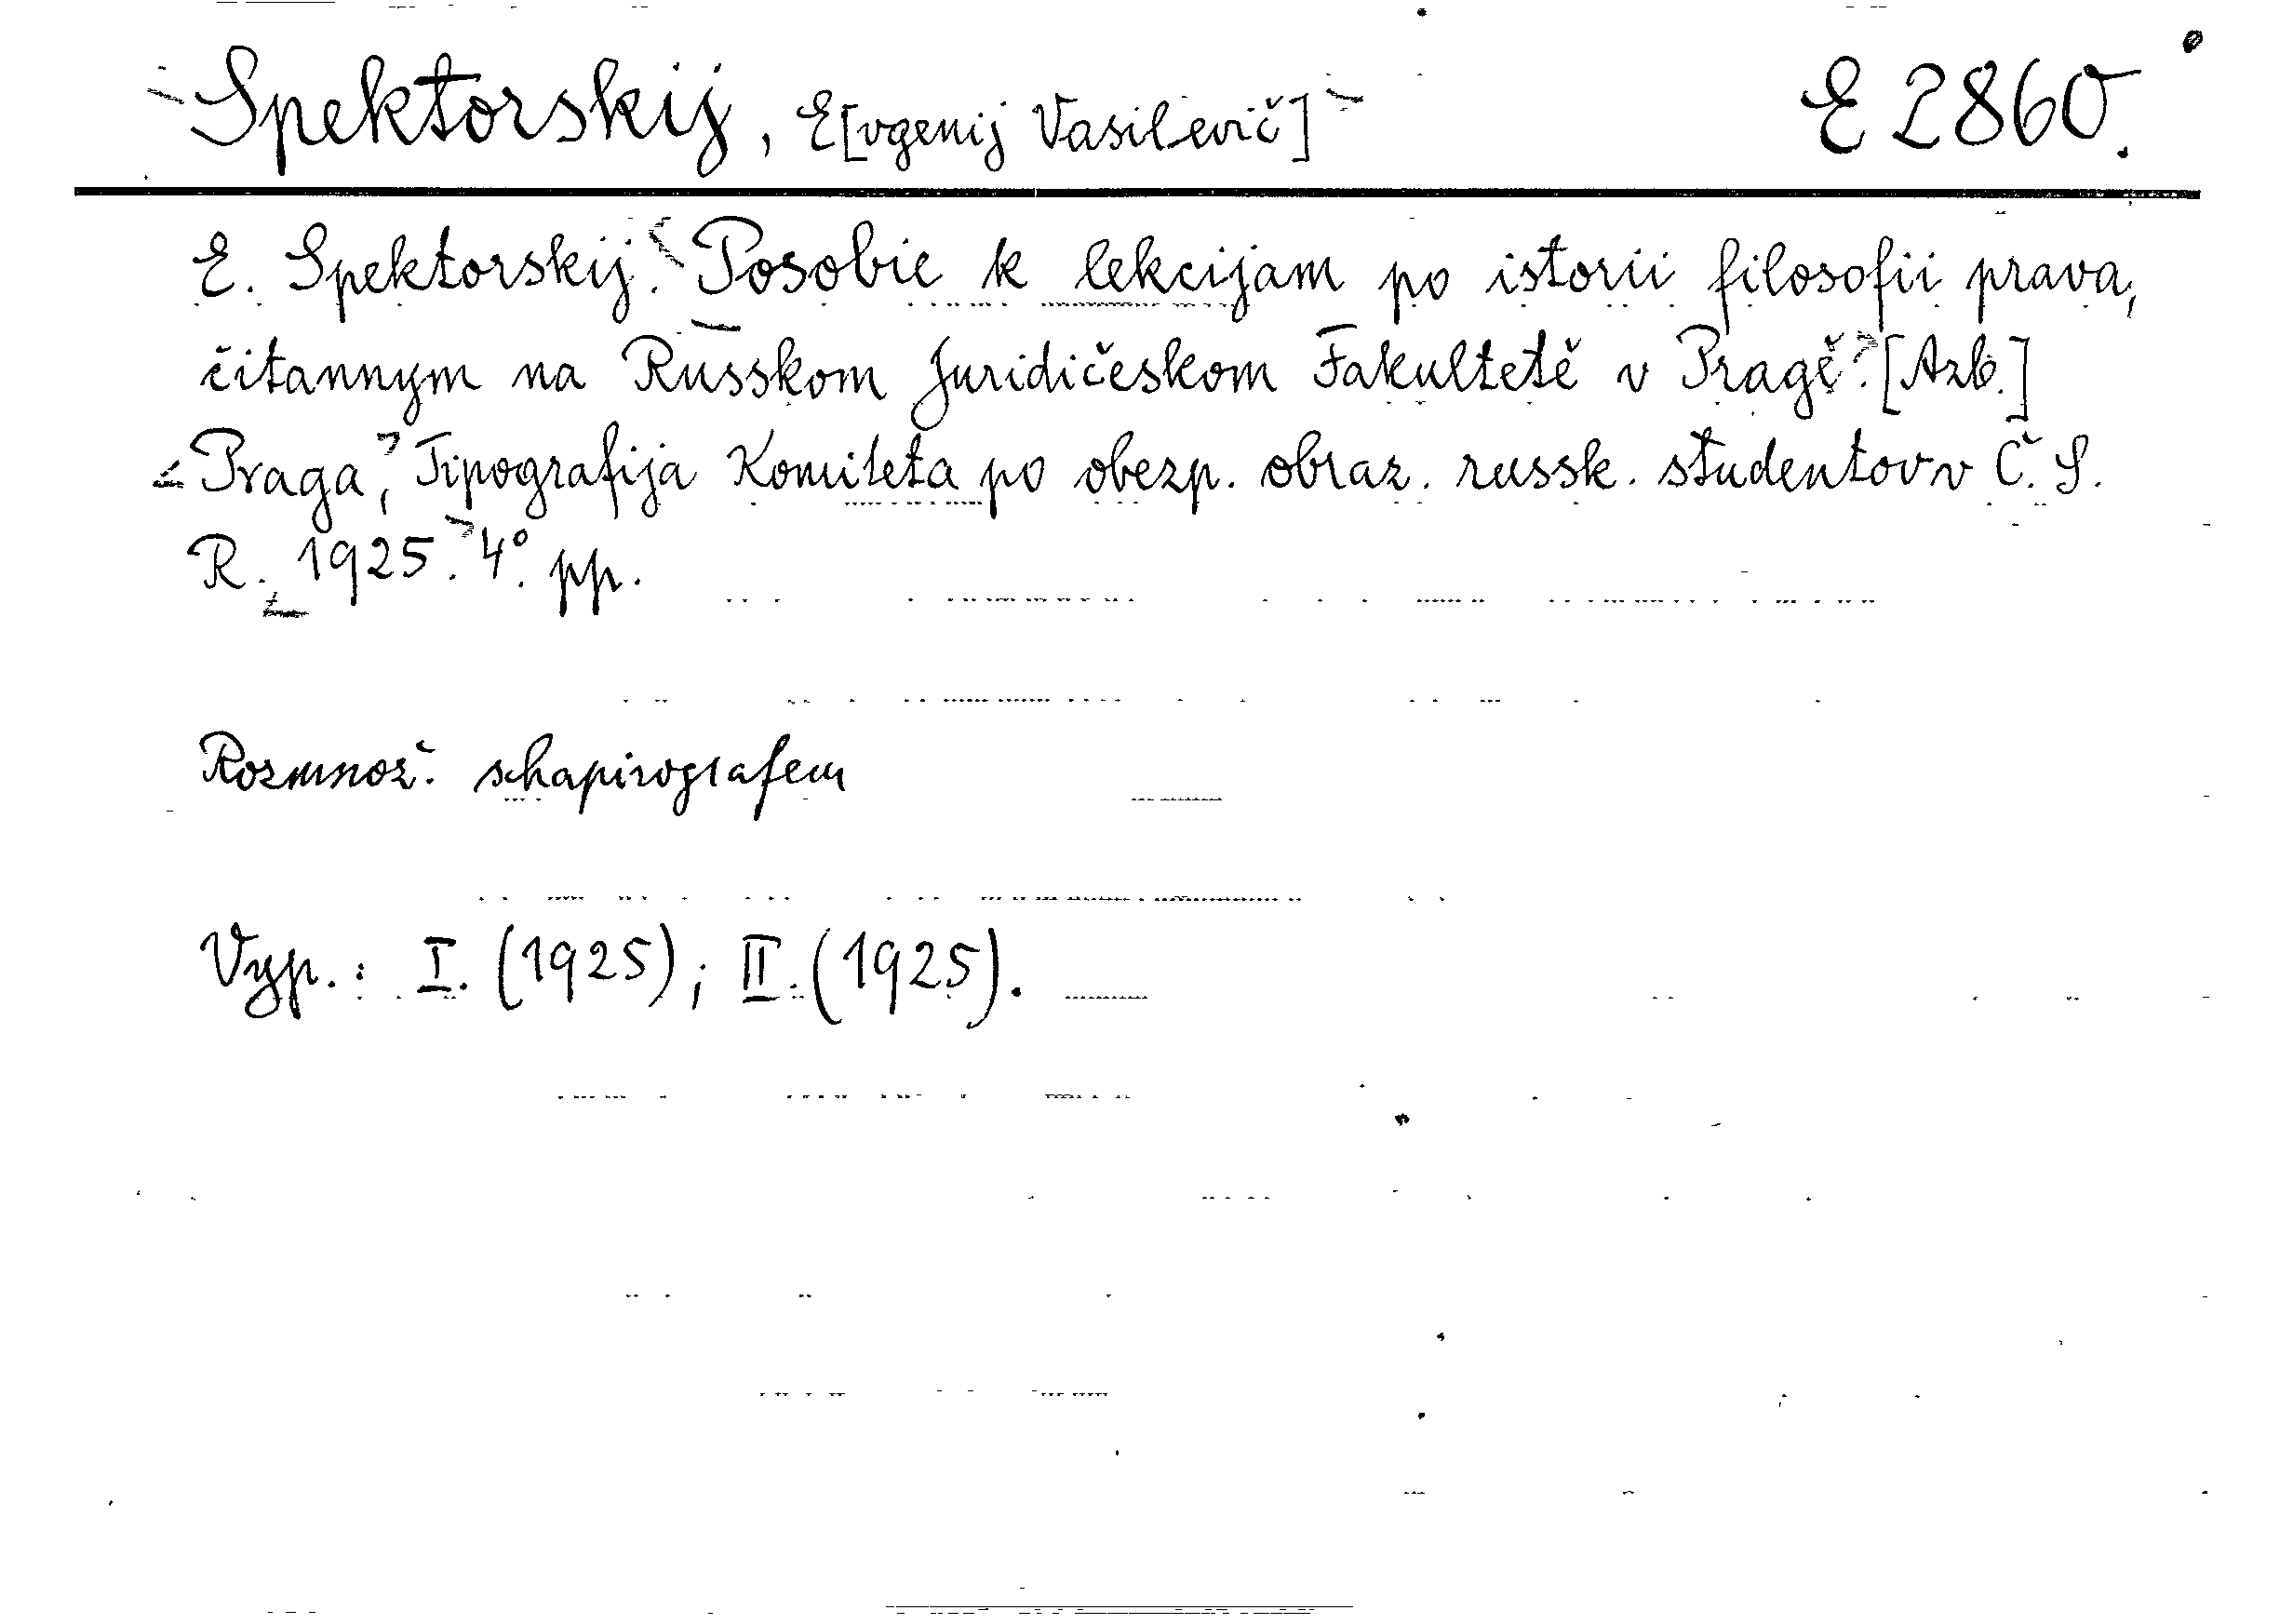 Spektorskij, E[vgenij Vasilevič] E 2860.
E. Spektorskij. Posobie k lekcijam po istorii filosofii prava,
čitannym na Russkom Juridičeskom Fakultetě v Pragě. [Azb.]
Praga, Tipografija Komiteta po obezp. obraz. russk. studentov v Č. S.
R. 1925. 4°. pp.
Rozmnož. schapirografem
Vyp.: I. (1925); II. (1925).